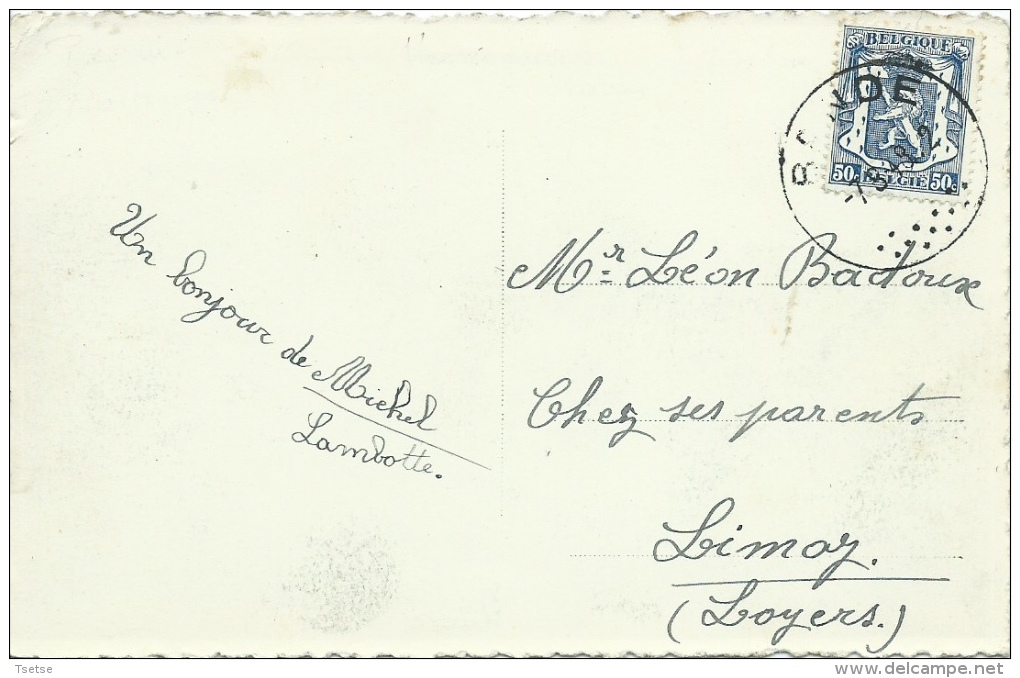 BELGIQUE
50c BELGIË 50c
Un bonjour de Michel
Lambotte.
Mr Léon Badoux
Chez ses parents
Limoy.
(Loyers.)
Tsetse
delcampe.net